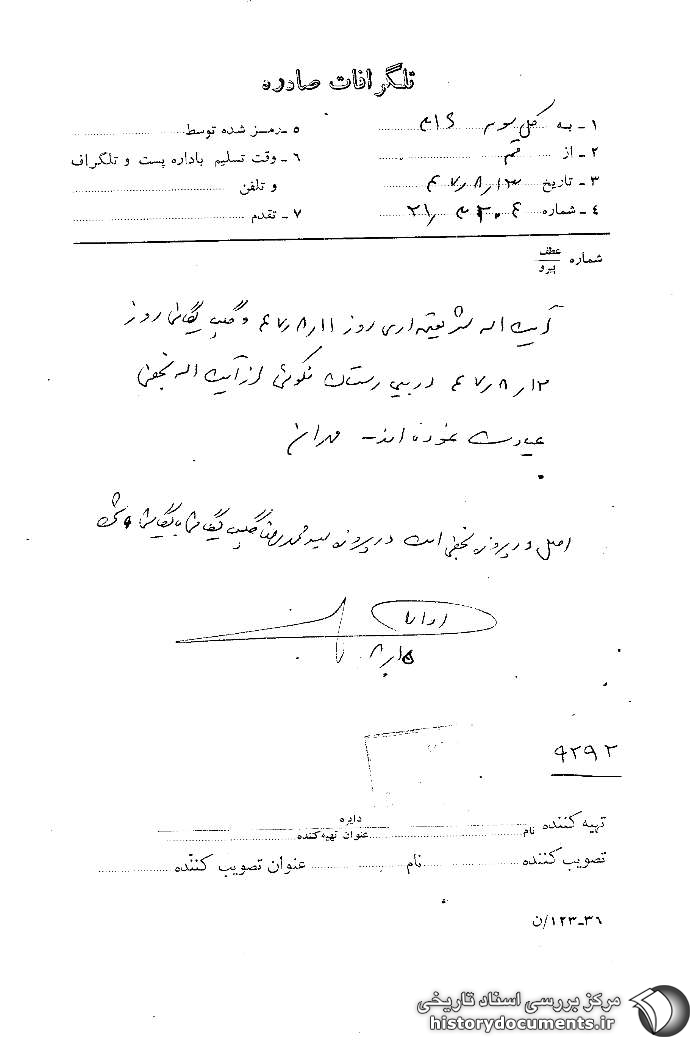 تلگرافات صادره
۱ - به کل سوم ۳۱۶
۲ - از قم
۳ - تاریخ ۴۷٫۸٫۱۳
۴ - شماره ۲۱٫
۵ - رمز شده توسط
۶ - وقت تسلیم باداره پست و تلگراف
و تلفن
۷ - تقدم
شماره عطف
پیرو
آیت اله شریعتمداری روز ۴۷٫۸٫۱۱ و گلپایگانی روز
۴۷٫۸٫۱۲ در بیمارستان نکوئی از آیت اله نجفی
عیادت نموده اند - مهران
اصل در پرونده نجفی است در پرونده سید محمدرضا گلپایگانی
۸٫۱۵
۹۲۹۲
تهیه کننده نام دایره
عنوان تهیه کننده
تصویب کننده نام عنوان تصویب کننده
۳۶-۱۲۳/ن
مرکز بررسی اسناد تاریخی
historydocuments.ir